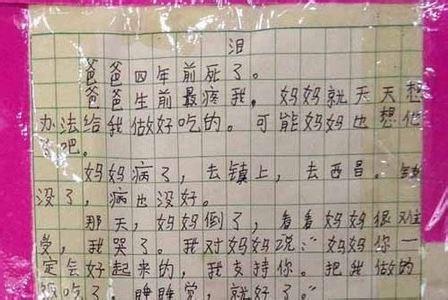 泪
爸爸四年前死了。
爸爸生前最疼我，妈妈就天天想
办法给我做好吃的。可能妈妈也想他
了吧。
妈妈病了，去镇上，去西昌。钱
没了，病也没好。
那天，妈妈倒了，看着妈妈很难
受，我哭了。我对妈妈说：“妈妈你一
定会好起来的，我支持你。把我做的
饭吃了，睡睡觉，就好了。”